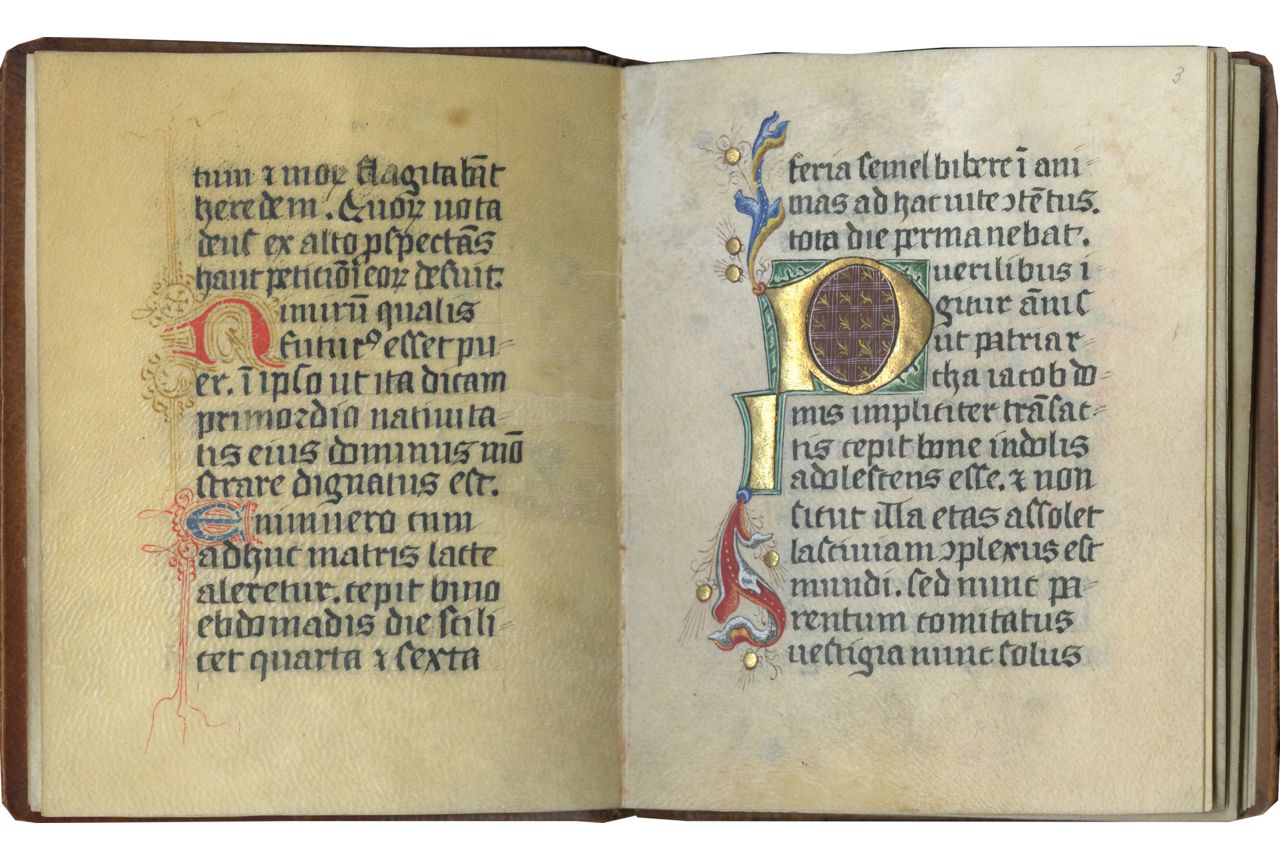 tum ⁊ moꝝ flagitabāt
heredem. Quoꝝ uota
deus ex alto ꝑspectās
haut peticiōi eoꝝ defuit.
Nimirū qualis
futurꝰ esset pu-
er. ī ipso ut ita dicam
primordio natiuita-
tis eius dominus mō
strare dignatus est.
Enimuero cum
adhuc matris lacte
aleretur. cepit bino
ebdomadis die scili-
cet quarta ⁊ sexta
3
feria semel bibere ī ani-
mas ad hac uite ↄtētus.
tota die permanebat.
Puerilibus i
gitur ānis
ut patriar-
cha iacob do-
mis impliciter trāsac-
tis cepit bone indolis
adolescens esse. ⁊ non
sicut illa etas assolet
lasciuiam ↄplexus est
mundi. sed nunc pa-
rentum comitatus
uestigia nunc solus